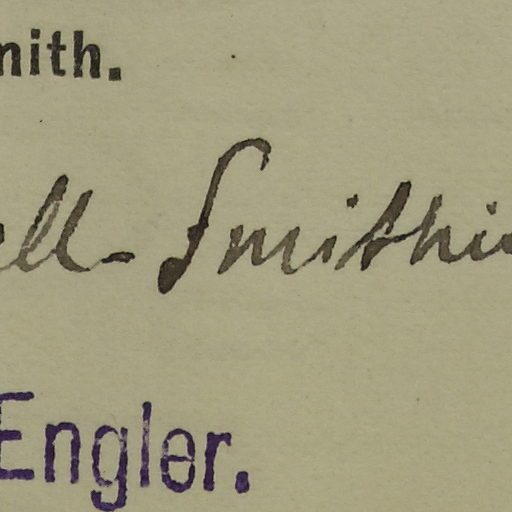 mith.
ell-Smithi
Engler.